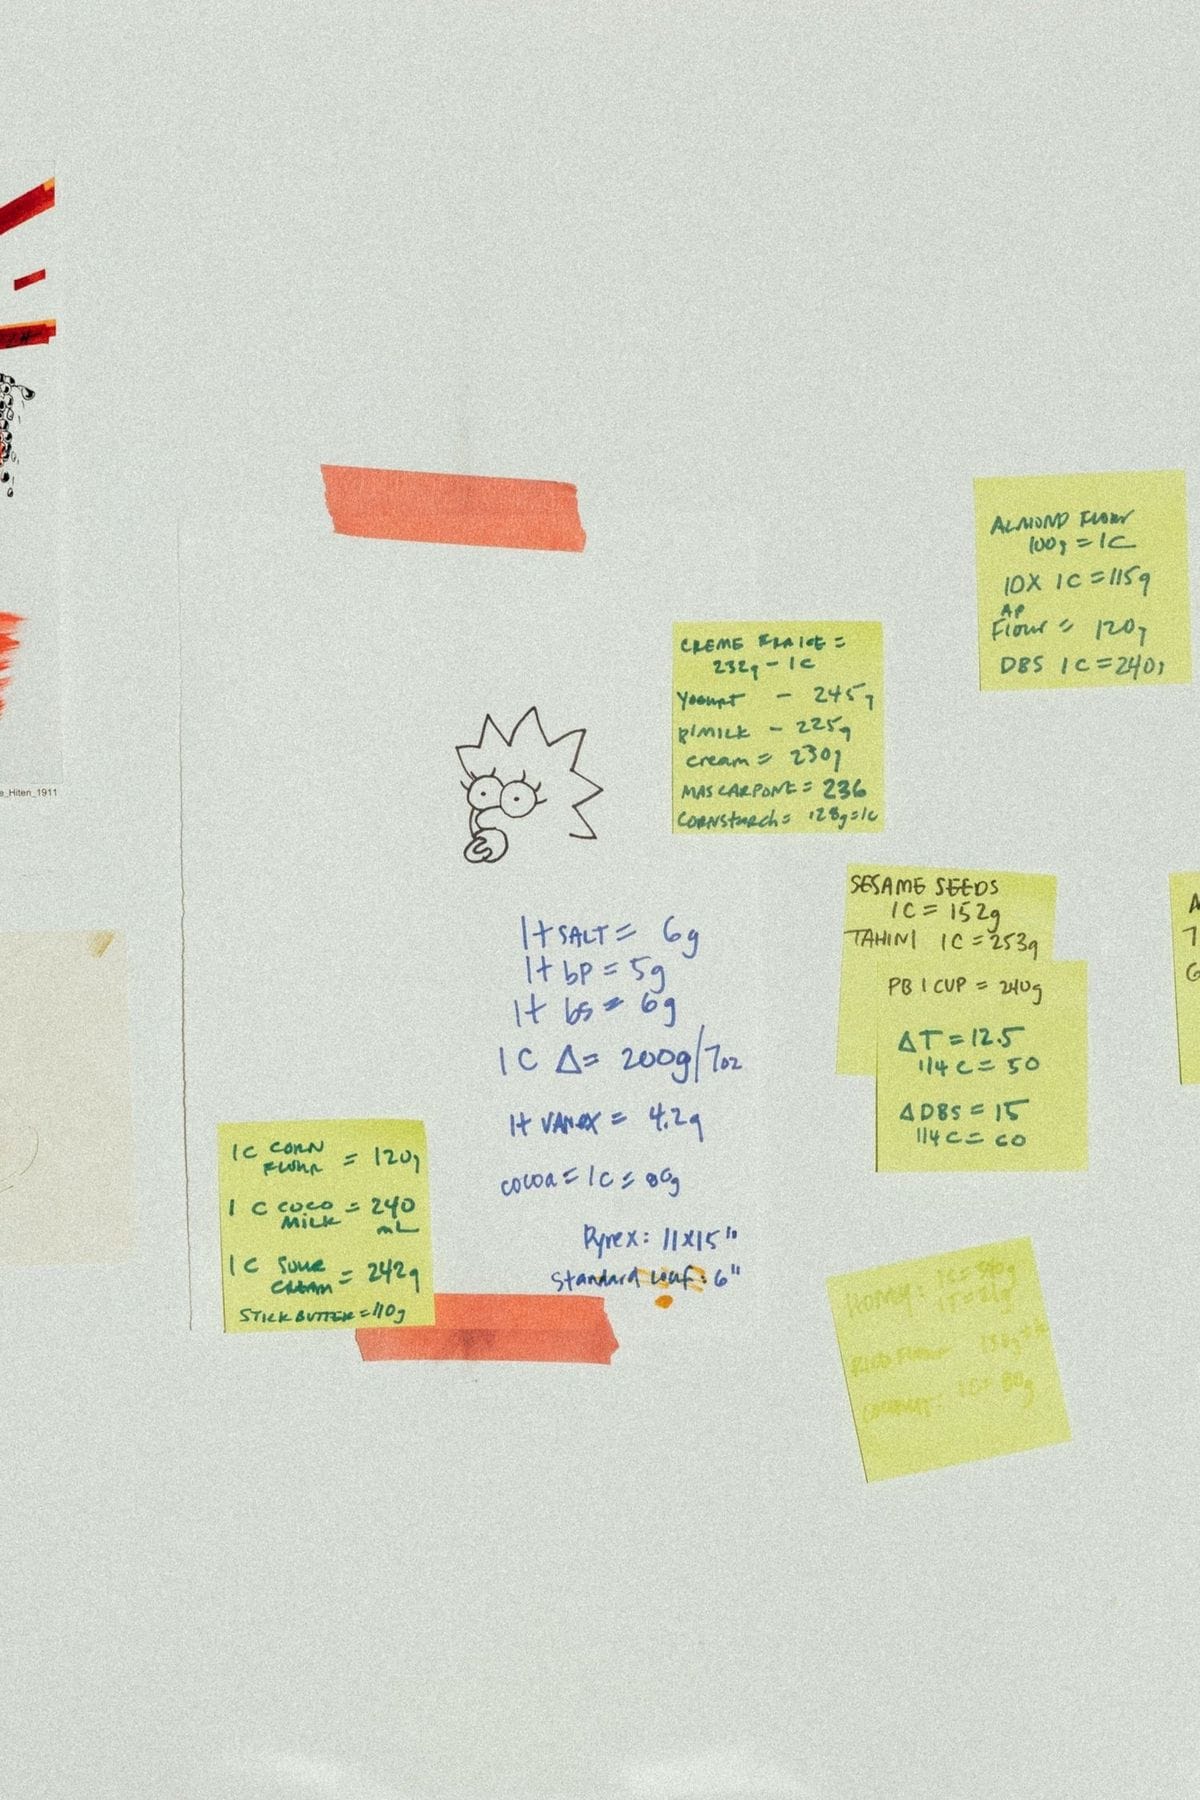 e_Hiten_1911
ALMOND FLOUR
100g = 1C
10X 1C = 115g
AP
Flour = 120g
DBS 1C = 240g
CREME FRAICE =
232g - 1C
Yogurt - 245g
B/MILK - 225g
cream = 230g
MASCARPONE = 236
CORNSTARCH = 128g = 1C
SESAME SEEDS
1C = 152g
TAHINI 1C = 253g
PB 1 CUP = 240g
ΔT = 12.5
1/4 C = 50
ΔDBS = 15
1/4 C = 60
1t SALT = 6g
1t bp = 5g
1t bs = 6g
1C Δ = 200g/7oz
1t VANEX = 4.2g
COCOA = 1C = 80g
Pyrex: 11x15"
Standard Loaf: 6"
1C CORN
FLOUR = 120g
1 C COCO
MILK = 240
mL
1C SOUR
CREAM = 242g
STICK BUTTER = 110g
Honey: 1C =
1T = 21g
RICE FLOUR 150g
COCONUT: 1C = 80g